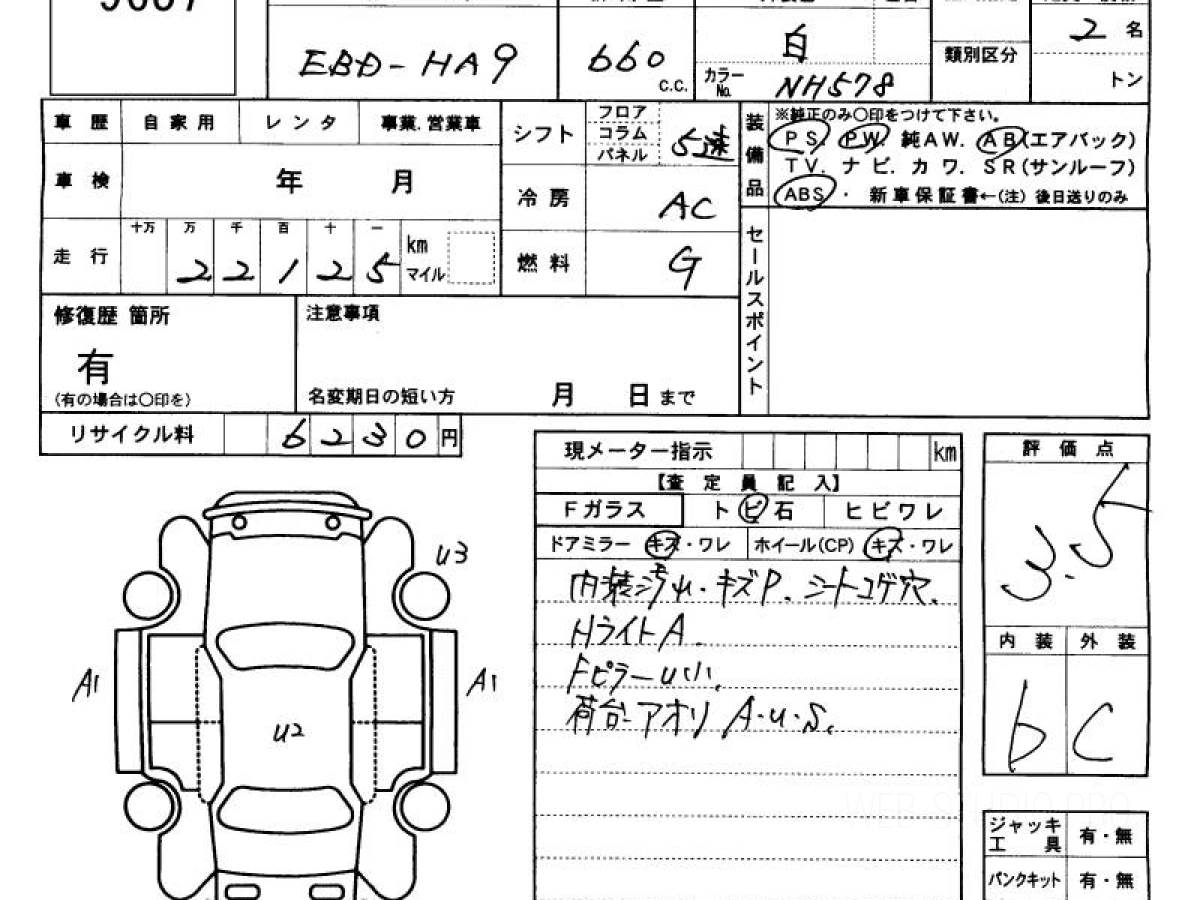 EBD-HA9
660
c.c.
白
カラー
No.
NH578
類別区分
2 名
トン
車歴 自家用 レンタ 事業.営業車
シフト フロア コラム パネル 5速
装備品
※純正のみ〇印をつけて下さい。
PS. PW. 純AW. AB(エアバック)
TV. ナビ. カワ. SR(サンルーフ)
ABS・ 新車保証書←(注) 後日送りのみ
車検 年 月
冷房 AC
走行 十万 万 千 百 十 一
22125 km マイル
燃料 G
セールスポイント
修復歴 箇所
有
(有の場合は〇印を)
注意事項
名変期日の短い方 月 日 まで
リサイクル料 6230円
現メーター指示 km
【査定員記入】
Fガラス トビ石 ヒビワレ
ドアミラー キズ・ワレ ホイール(CP) キズ・ワレ
内装汚れ・キズP. シートコゲ穴.
Hライト A.
Fピラー U小.
荷台-アオリ A・U・S.
評価点
3.5
内装 外装
b C
U3
A1
A1
U2
WEB-STUDIO.PRO
ジャッキ 工具 有・無
パンクキット 有・無